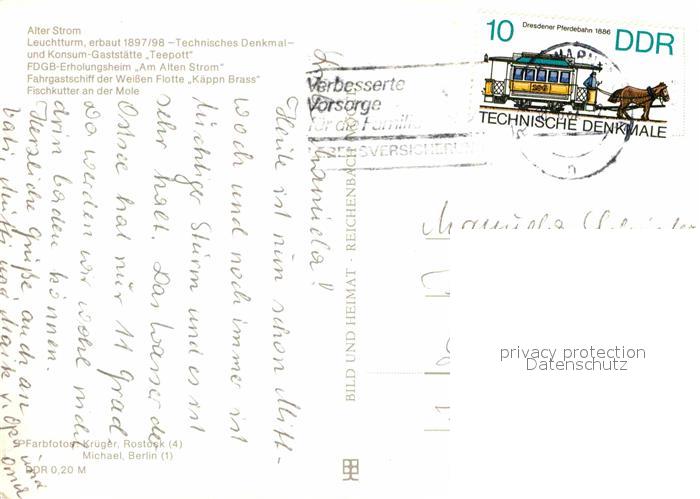 Alter Strom
Leuchtturm, erbaut 1897/98 —Technisches Denkmal—
und Konsum-Gaststätte „Teepott"
FDGB-Erholungsheim „Am Alten Strom"
Fahrgastschiff der Weißen Flotte „Käppn Brass"
Fischkutter an der Mole
Heute ist nun schon Mitt-
woch und noch immer ist
tüchtiger Sturm und es ist
sehr kalt. Das Wasser der
Ostsee hat nur 11 Grad
Da werden wir wohl nicht
drin baden können.
Herzliche Grüße, auch an
Vati, Mutti und Maik v. Opa und
Oma
Farbfotos: Krüger, Rostock (4)
Michael, Berlin (1)
DDR 0,20 M
BILD UND HEIMAT · REICHENBACH
Verbesserte
Vorsorge
für die Familie
LEBENSVERSICHERUNG
10
Dresdener Pferdebahn 1886
DDR
TECHNISCHE DENKMALE
Manuela
privacy protection
Datenschutz